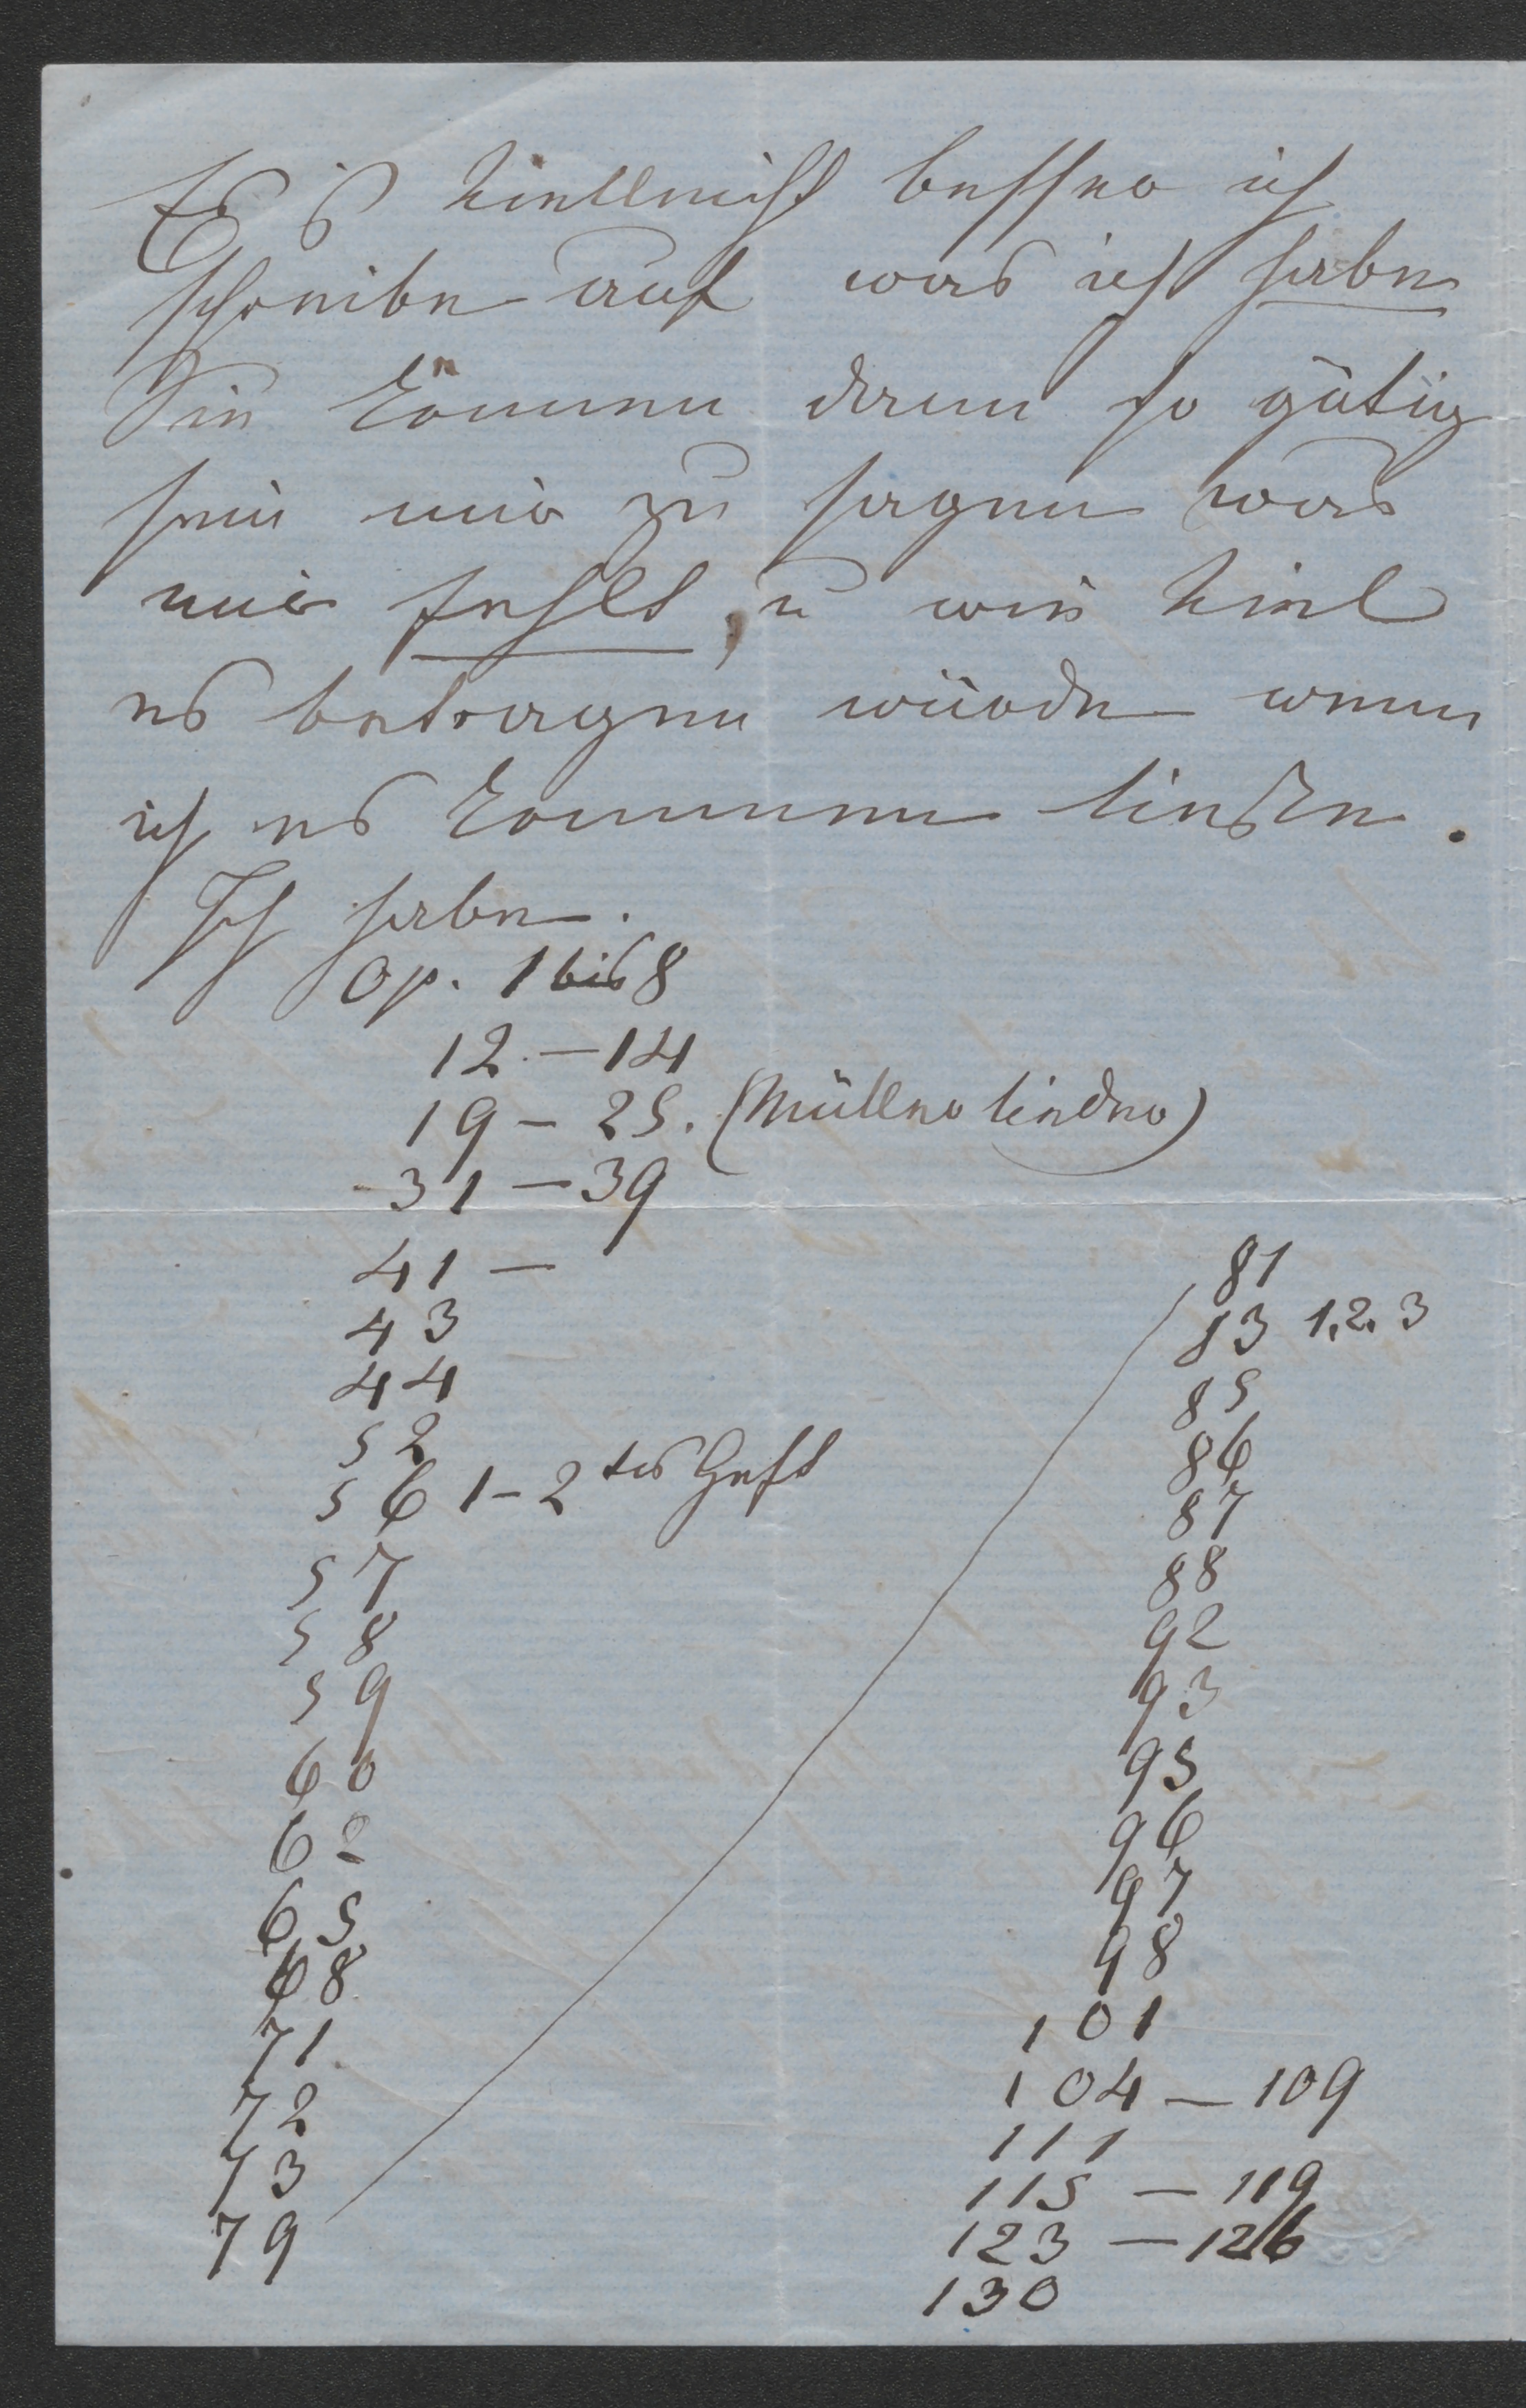 Es is vielleicht besser ich
schreibe auf was ich habe
Sie können dann so gütig
sein mir zu sagen was
mir fehlt, u wie viel
es betragen würde wenn
ich es kommen ließe.
Ich habe.
Op. 1 bis 8
12 – 14
19 – 25. (Müllerlieder)
31 – 39
41 –
43
44
52
56 1–2tes Heft
57
58
59
60
62
65
68
71
72
73
79
81
83 1. 2. 3
85
86
87
88
92
93
95
96
97
98
101
104 – 109
111
115 – 119
123 – 126
130